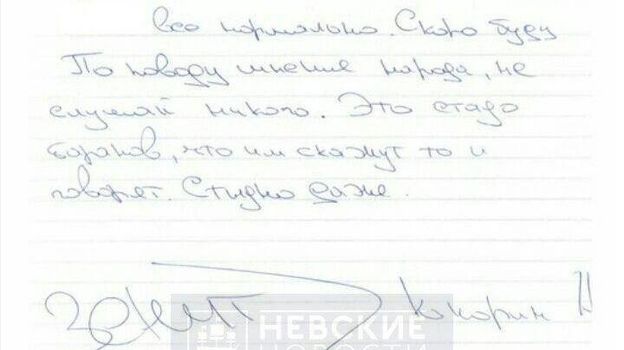 все нормально. Скоро буду
По поводу мнение народа, не
слушай никого. Это стадо
баранов, что им скажут то и
говорят. Стыдно даже.
Зенит Кокорин А
НЕВСКИЕ
НОВОСТИ